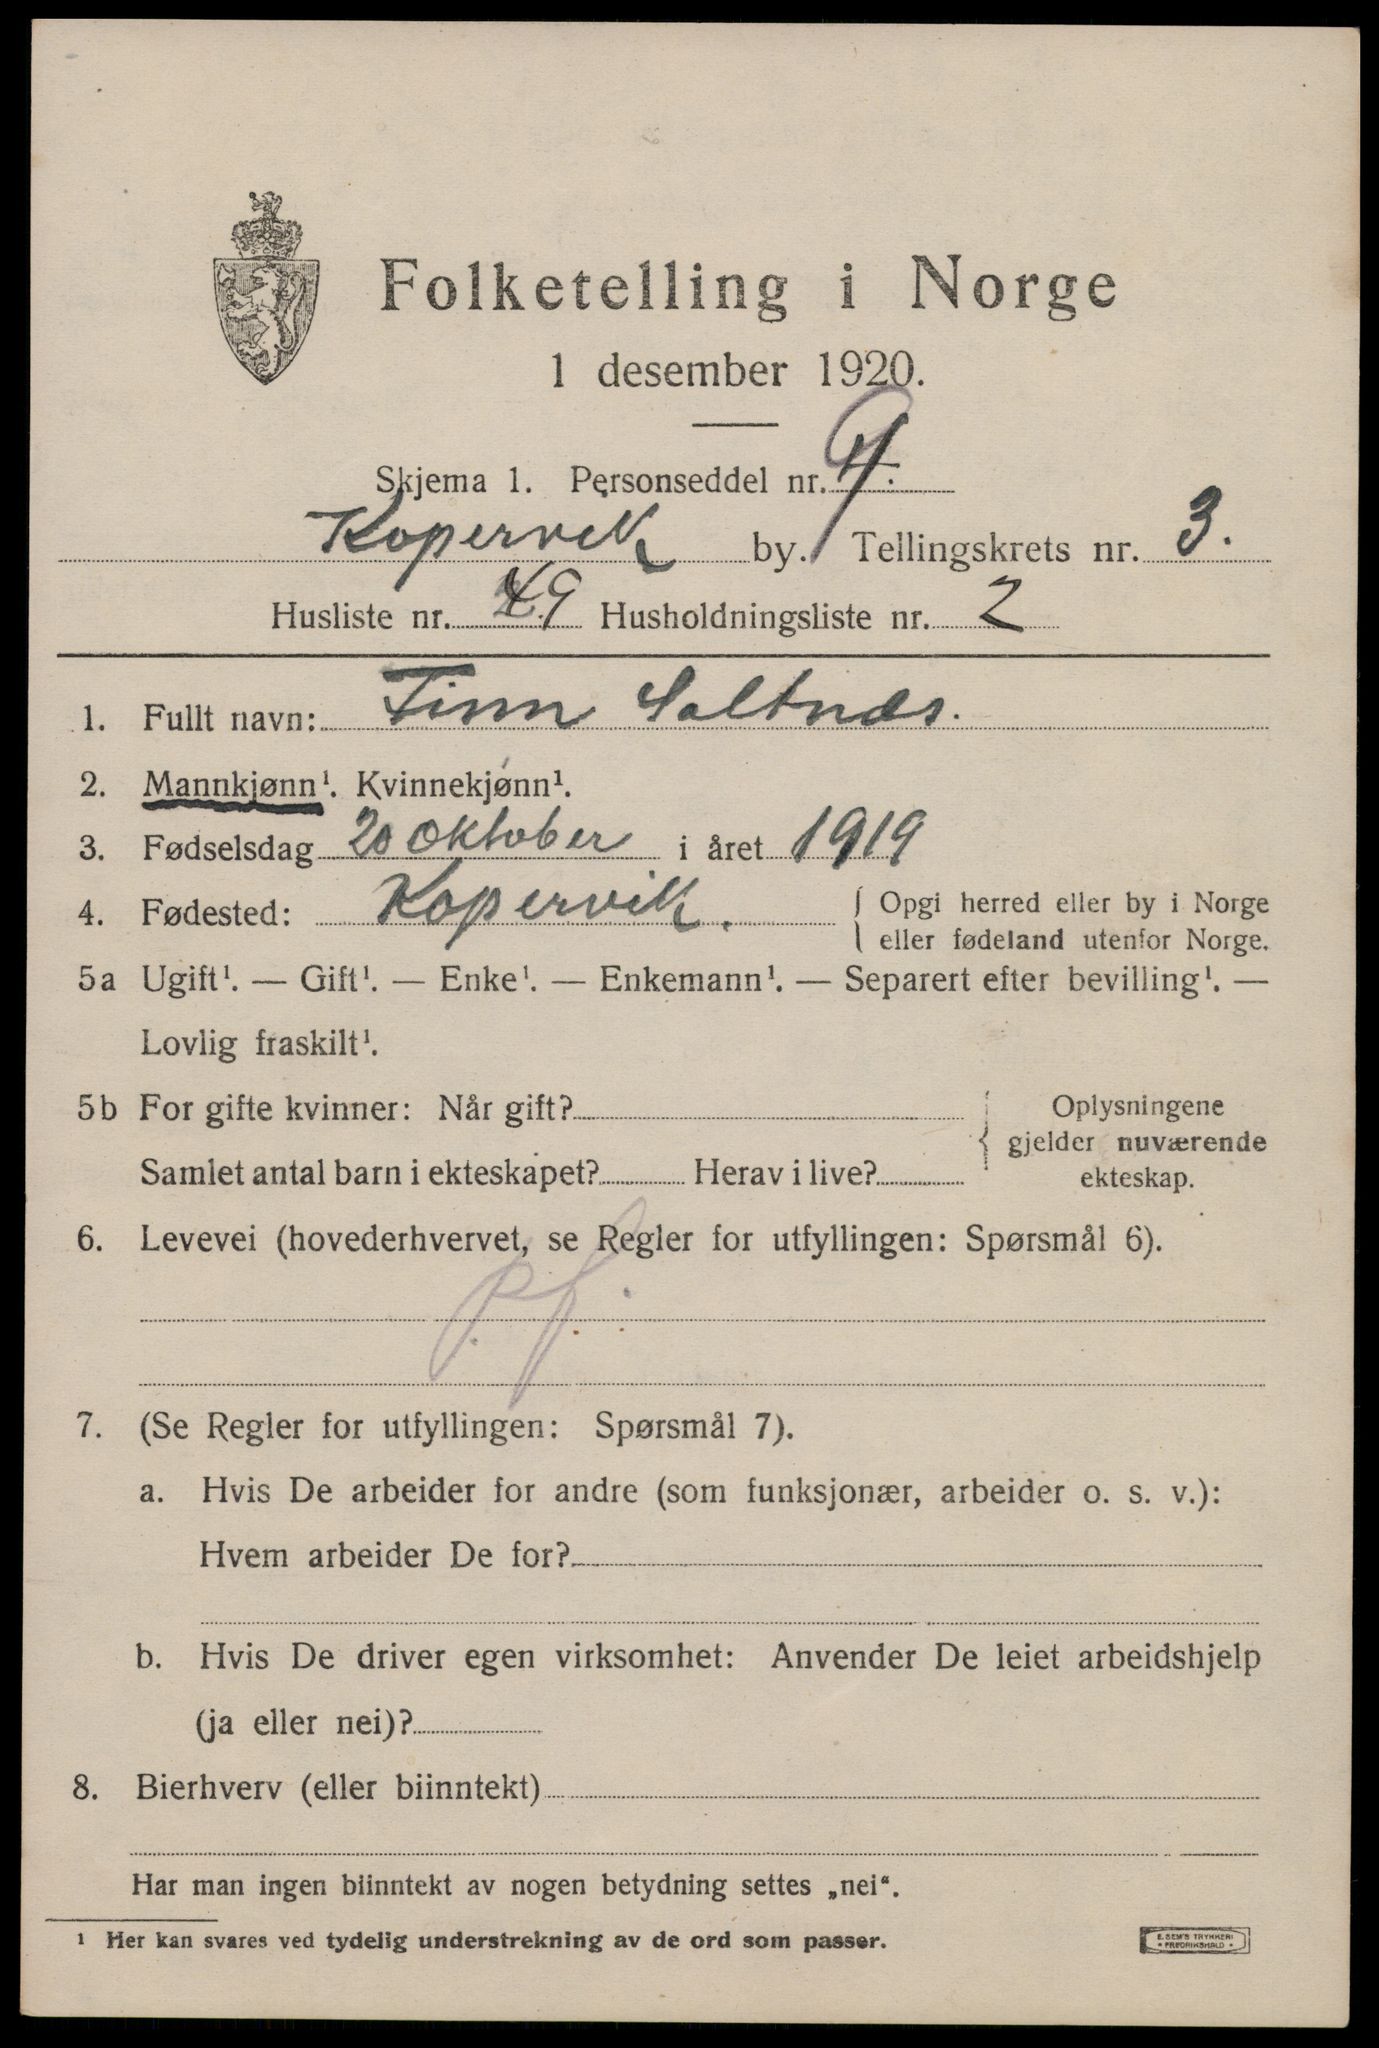 Folketelling i Norge
1 desember 1920.
Skjema 1. Personseddel nr.
Kopervik by. Tellingskrets nr. 3.
Husliste nr. 49 Husholdningsliste nr. 2
1. Fullt navn: Finn Saltnæs.
2. Mannkjønn¹. Kvinnekjønn¹.
3. Fødselsdag 20 oktober i året 1919
4. Fødested: Kopervik. { Opgi herred eller by i Norge
eller fødeland utenfor Norge.
5a Ugift¹. — Gift¹. — Enke¹. — Enkemann¹. — Separert efter bevilling¹. —
Lovlig fraskilt¹.
5b For gifte kvinner: Når gift? { Oplysningene
gjelder nuværende
Samlet antal barn i ekteskapet? Herav i live? ekteskap.
6. Levevei (hovederhvervet, se Regler for utfyllingen: Spørsmål 6).
p.f.
7. (Se Regler for utfyllingen: Spørsmål 7).
a. Hvis De arbeider for andre (som funksjonær, arbeider o. s. v.):
Hvem arbeider De for?
b. Hvis De driver egen virksomhet: Anvender De leiet arbeidshjelp
(ja eller nei)?
8. Bierhverv (eller biinntekt)
Har man ingen biinntekt av nogen betydning settes „nei“.
¹ Her kan svares ved tydelig understrekning av de ord som passer.
E. SEM'S TRYKKERI
• FREDRIKSHALD •